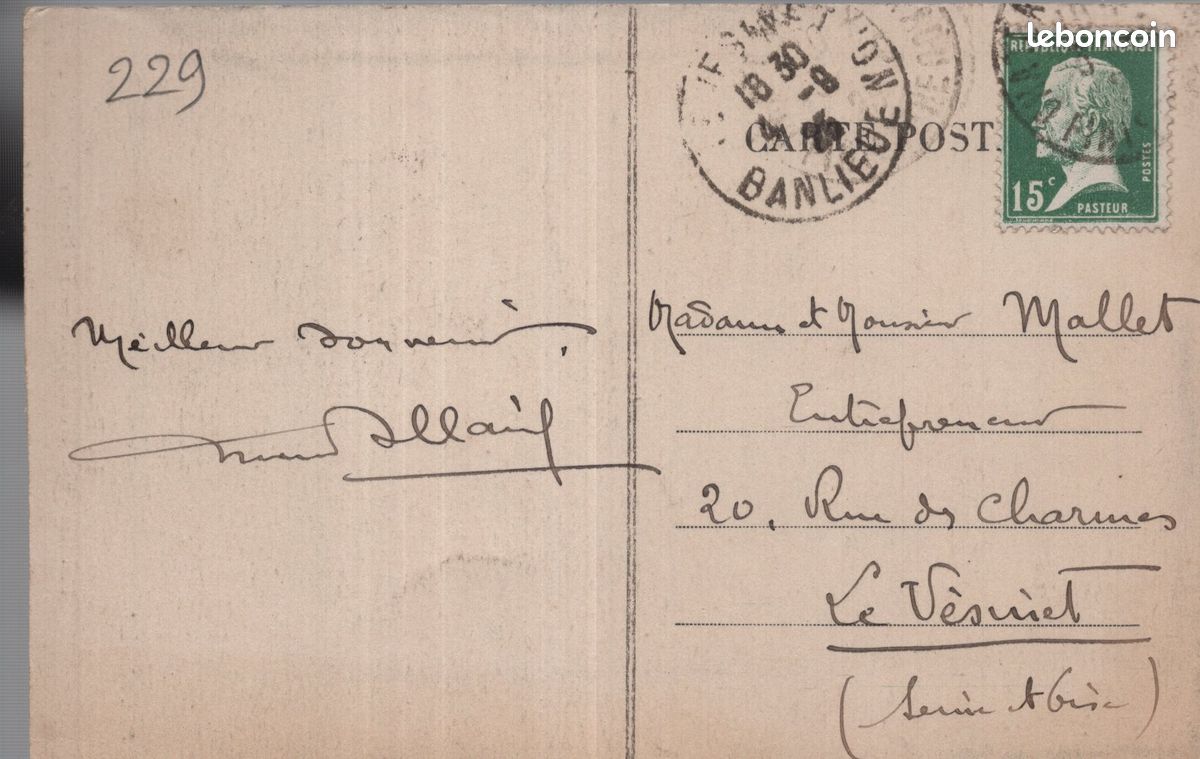 leboncoin
229
18 30
BANLIEUE
CARTE POST
RÉPUBLIQUE FRANÇAISE
POSTES
15c
PASTEUR
Meilleur souvenir.
Madame et Monsieur Mallet
Entrepreneur
20, Rue des Charmes
Le Vésinet
(Seine et Oise)